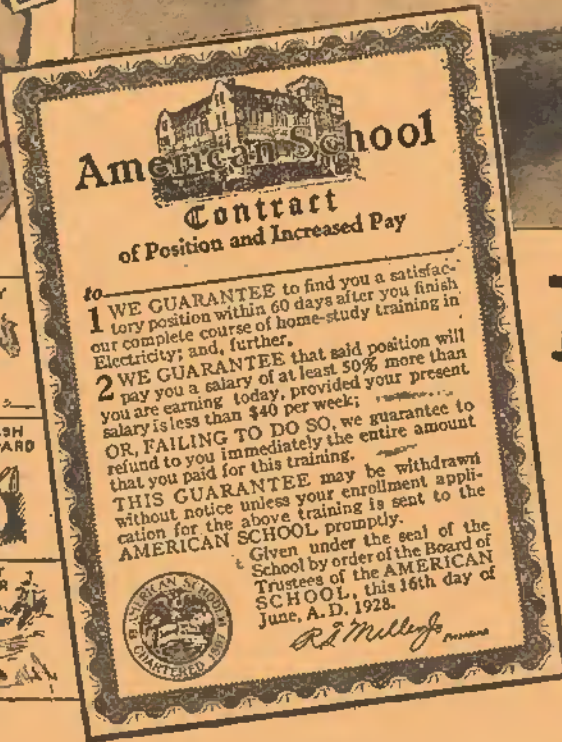 American School
Contract
of Position and Increased Pay
to
1 WE GUARANTEE to find you a satisfac-
tory position within 60 days after you finish
our complete course of home-study training in
Electricity; and, further,
2 WE GUARANTEE that said position will
pay you a salary of at least 50% more than
you are earning today, provided your present
salary is less than $40 per week;
OR, FAILING TO DO SO, we guarantee to
refund to you immediately the entire amount
that you paid for this training.
THIS GUARANTEE may be withdrawn
without notice unless your enrollment appli-
cation for the above training is sent to the
AMERICAN SCHOOL promptly.
Given under the seal of the
School by order of the Board of
Trustees of the AMERICAN
SCHOOL, this 16th day of
June, A. D. 1928.
AMERICAN SCHOOL
CHARTERED 1897